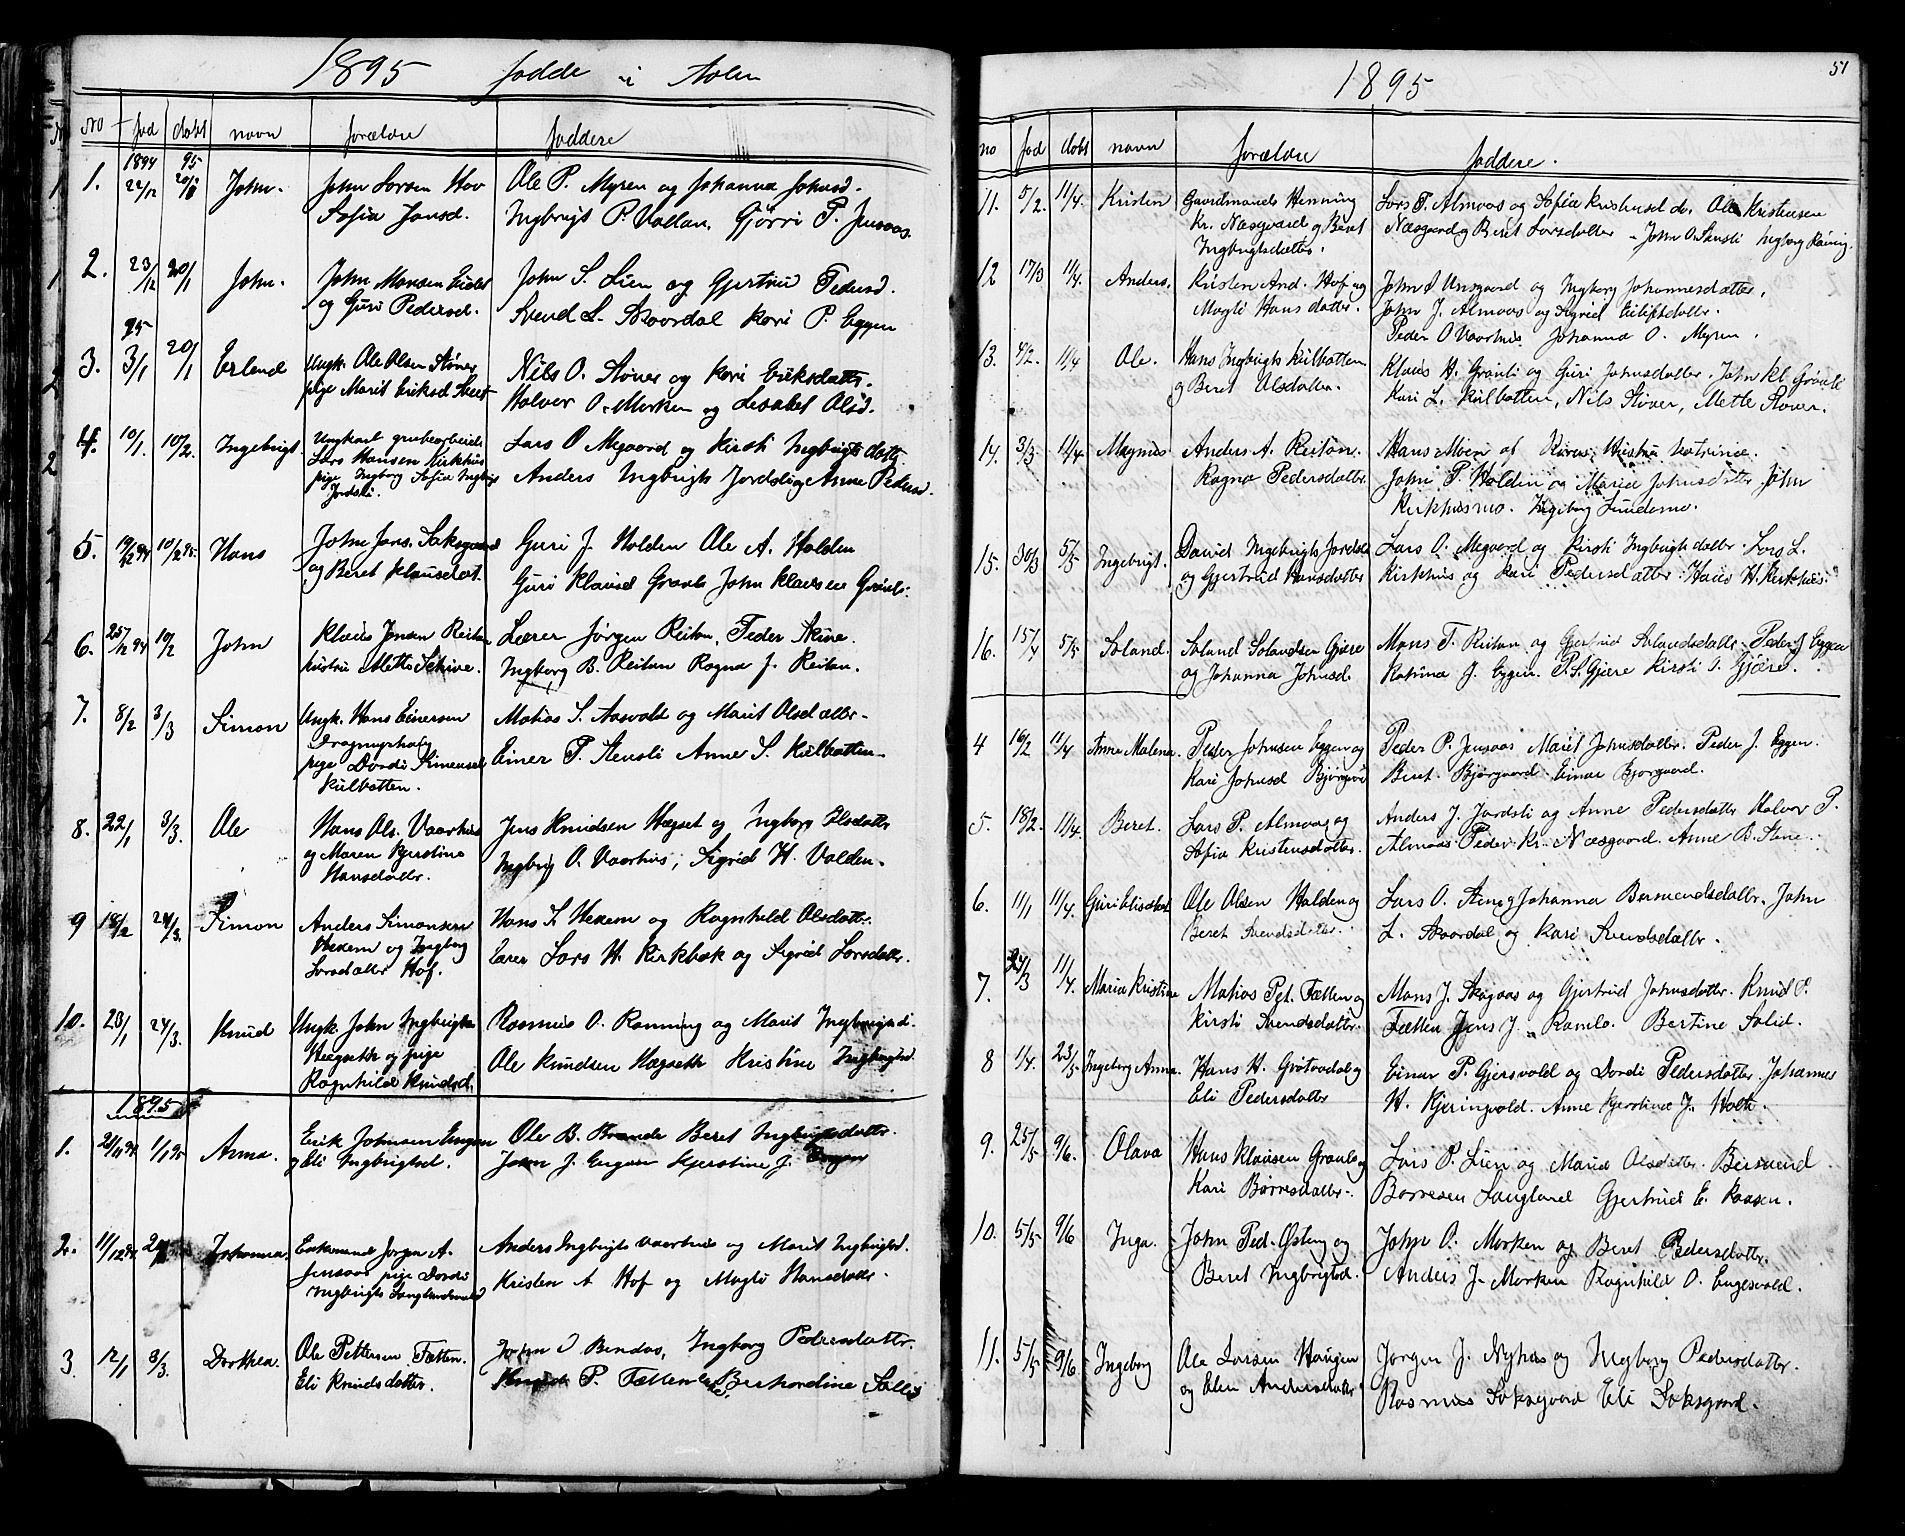 1895 fødde i Aalen
No fød døbt navn forældre faddere
1. 1894 22/12 95 20/1 John. John Larsen Hov Ole P. Myren og Johanna Johnsd.
Sofia Jansd. Ingbrigt P. Vollan, Gjørri P. Jensaas.
2. 23/12 20/1 John. John Monsen John S. Lien og Gjertrud Pedersd.
og Guri Pedersd. Svend L. Skaardal Kari P. Eggen
95
3. 3/1 20/1 Erlend Ungk. Ole Olsen Støver Nils O. Støver og Kari Eriksdattr.
pige Marit Eriksd. Halvor O. Morken og Lisabet Olsd.
4. 10/1 10/2. Ingebrigt Ungkarl grubearbeider Lars O. Megaard og Kirsti Ingbrigtsdattr
Lars Hansen Kirkhus Anders Ingbrigts Jordsli og Anne Pedersd.
pige Ingborg Sofia Ingbrigts
Jordsli.
5. 19/12 94 10/2 95. Hans John Jans. Saksgaard Guri J. Holden Ole A. Holden
og Beret Klausdat. Guri Klausd Graali John Klausen Graali.
6. 25/12 94 10/2 John Klaus Jonsen Reitan Lærer Jørgen Reitan, Peder Stene.
hustru Mette Ingborg B. Reitan Ragna J. Reitan.
7. 8/2 3/3 Simon Ungk. Hans Einersen Matias S. Aasvold og Marit Olsdattr.
Dragmyrhaug Einer P. Stensli Anne S. Kulbotten.
pige Dordi Simensd
Kulbotten.
8. 22/1 3/3. Ole Hans Ols. Vaarhus Jens Knudsen Hegset og Ingborg Olsdattr
og Maren Kjerstine Ingbrig O. Vaarhus, Sigrid H. Volden.
Hansdattr.
9 18/2 24/3. Simon Anders Simonsen Hans S. Hexem og Ragnhild Olsdattr.
Hexem og Ingborg Lærer Lars H. Kirkbak og Sigrid Larsdattr.
Larsdatter Hof.
10. 23/1 24/3. Knud Ungk. John Ingbrigtsen Rasmus O. Ramning og Marit Ingbrigtsd.
Hegseth og pige Ole Knudsen Hegseth Kristine Ingbrigtsd.
Ragnhild Knudsd.
1895
1. 1/1 95 Anna. Erik Johnsen Engan Ole B. Brande Beret Ingbrigtsdattr.
og Eli Ingbrigtsd. John J. Engan Kjerstine J. Engan
2. 11/12 94 Johanna. Jørgen A. Anders Ingbrigts Vaarhus og Marit Ingbrigtsd.
Jensaas pige Dordi Kristen A Hof og Magli Hansdattr.
Ingbrigts Langlandsvold
3. 12/1 3/3. Dorthea. Ole Pettersen Fætten. John O Bendos, Ingborg Pedersdattr.
Eli Knudsdatter. Knud P. Fætten Berhardine Sollid
51
1895
no fød døbt navn forældre faddere.
11. 5/2. 11/4. Kristen Gaardmand Henning Lars P. Almaas og Sofia Kristensd dr. Ole Kristensen
Kr. Næsgaard og Beret Næsgaard og Beret Larsdatter. John O. Stensli Ingborg Røning.
Ingbrigtsdatter.
12 17/3 11/4. Anders. Kristen And. Hof og John S Unsgaard og Ingborg Johannesdatter,
Magli Hansdatter. John J. Almaas og Sigrid Eiliftdatter.
Peder O Vaarhus. Johanna O. Myren.
13. 4/2. 11/4 Ole. Hans Ingbrigts Kulbotten Klaus H. Graali og Guri Johnsdatter. John Kl. Graali
og Beret Olsdatter. Kari L. Kulbotten, Nils Støver, Mette Støver.
14. 3/3. 11/4 Magnus Anders A. Reitan. Hans Moen af Røros. Hustru Katrina.
Ragna Pedersdatter. John P. Holdin og Maria Johnsdatter John
Kirkhusmo. Ingeborg Lundemo.
15. 30/3 5/5 Ingebrigt. David Ingebrigts Jordsli Lars O. Megaard og Kirsti Ingbrigtdattr. Lars L.
og Gjertrud Hansdatter Kirkhus og Kari Pedersdatter. Hans H. Kirkhus.
16. 15/4 5/5 Soland. Soland Solandsen Gjære Mons P. Reitan og Gjertrud Solandsdattr. Peder J Eggen
og Johanna Johnsd. Katrina J. Eggen. P. S. Gjære Kirsti S. Gjære.
4 16/2 11/4 Anne Malena. Peder Johnsen Eggen og Peder P. Jensaas Marit Johnsdattr. Peder J. Eggen.
Kari Johnsd Bjørgaard Beret. Bjørgaard Einar Bjørgaard.
5. 18/2. 11/4. Beret. Lars P. Almaas og Anders J. Jordsli og Anne Pedersdatter Halvor P.
Sofia Kristensdatter. Almaas Peder Kr. Næsgaard. Anne B. Stene.
6. 11/1 11/4. Guri Elisabet Ole Olsen Holden og Lars O. Stene og Johanna Bersvendsdattr. John
Beret Svendsdattr. L. Skaardal og Kari Svendsdattr.
7. 27/3 11/4. Maria Kristine Matias Pet. Fætten og Mons J. Skogaas og Gjertrud Johnsdattr. Knud P.
Kirsti Svendsdattr. Fætten Jens J. Ramlo. Bertine Solid.
8 1/4. 23/5 Ingeborg Anna. Hans H. Grøtvadal og Einar P. Gjersvold og Dordi Pedersdatter. Johannes
Eli Pedersdatter H. Kjeringvold. Anne Kjerstine J. Holte.
9. 25/5 9/6. Olava Hans Klausen Graali og Lars P. Lien og Marit Olsdattr. Bersvend
Kari Børresdattr. Borresen Langland Gjertrud E. Kaasen.
10. 5/5 9/6 Inga. John Ped. Østeng og John O. Morken og Beret Pedersdatter.
Beret Ingbrigtsd. Anders J. Morken Ragnhild O. Engesvold.
11. 5/5 9/6 Ingeborg Ole Larsen Haugen Jørgen J. Nyhus og Ingborg Pedersdatter.
og Elen Andersdatter Rasmus Saksgaard Eli Saksgaard.